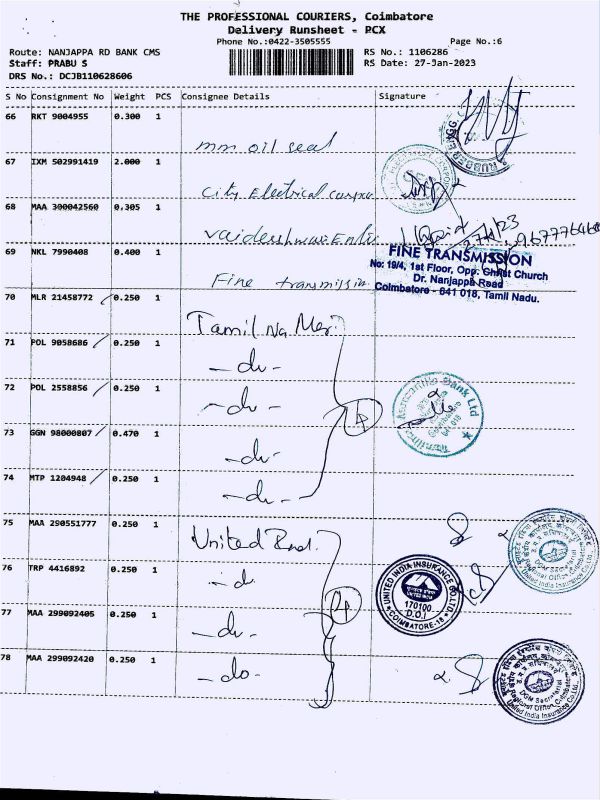 THE PROFESSIONAL COURIERS, Coimbatore
Delivery Runsheet - PCX
Phone No.:0422-3505555
Page No.:6
Route: NANJAPPA RD BANK CMS
RS No.: 1106286
Staff: PRABU S
RS Date: 27-Jan-2023
DRS No.: DCJB110628606
S No Consignment No Weight PCS Consignee Details Signature
66 RKT 9004955 0.300 1
mm oil seal
RUBBER ENGG.
67 IXM 502991419 2.000 1
City Electrical
68 MAA 300042560 0.305 1
27/1/23
69 NKL 7990408 0.400 1
Fine transmission
FINE TRANSMISSION
No: 19/4, 1st Floor, Opp. Christ Church
Dr. Nanjappa Road
Coimbatore - 641 018, Tamil Nadu.
70 MLR 21458772 0.250 1
Tamil Na Mer.
71 POL 9058686 0.250 1
- do -
72 POL 2558856 0.250 1
- do -
Tamilnad Mercantile Bank Ltd
73 GGN 98000807 0.470 1
- do -
74 MTP 1204948 0.250 1
- do -
75 MAA 290551777 0.250 1
United Ind.
76 TRP 4416892 0.250 1
- do
UNITED INDIA INSURANCE CO.LTD.
170100
D.O.I
COIMBATORE-18
77 MAA 299092405 0.250 1
- do -
78 MAA 299092420 0.250 1
- do -
DGM Secretariat
Regional Office, Coimbatore
United India Insurance Co.Ltd.,